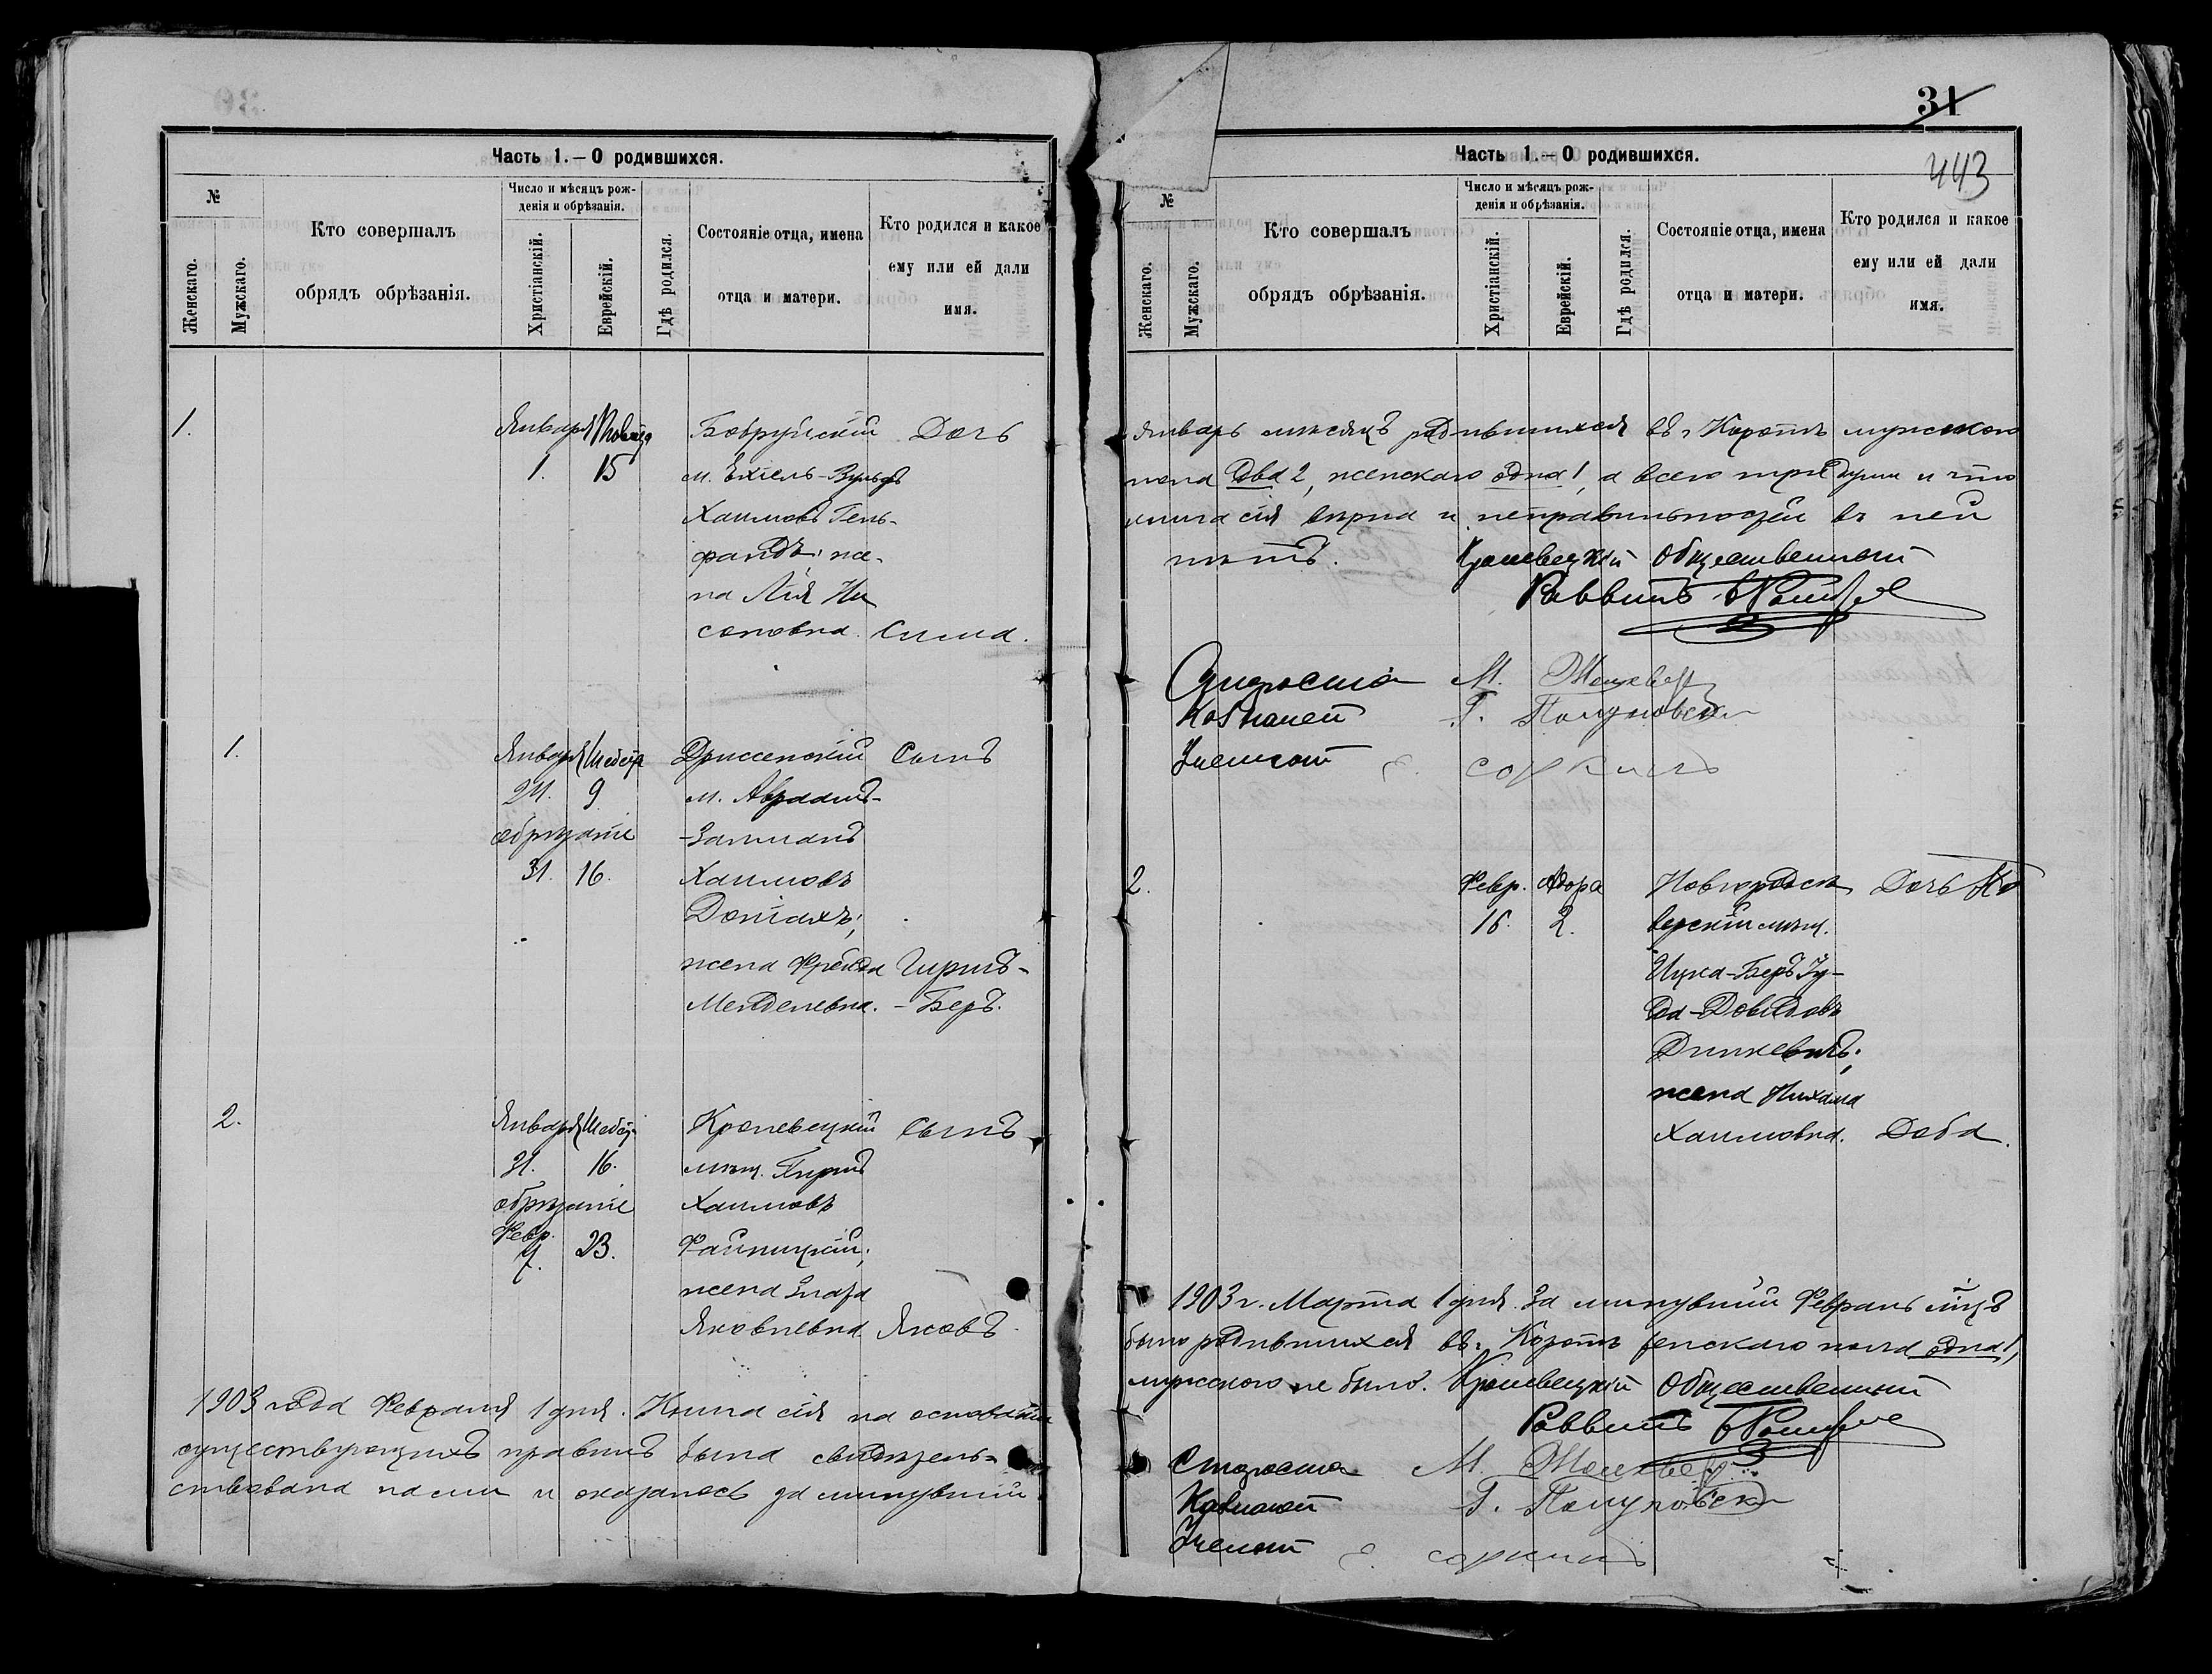 Часть 1.—О родившихся.
№
Женскаго.
Мужскаго.
Кто совершалъ
обрядъ обрѣзанія.
Число и мѣсяцъ рож-
денія и обрѣзанія.
Христіанскій.
Еврейскій.
Гдѣ родился.
Состояніе отца, имена
отца и матери.
Кто родился и какое
ему или ей дали
имя.
1. Января Бобруйскій Дочь
1. 15 м. Ехіель-Вульфъ
Хаимовъ Гель-
фандъ; же-
на Лія Ни
соновна. Сима.
1. Января Шебата Дриссенскій Сынъ
24. 9 м. Абрамъ-
обрѣзаніе -Залманъ
31. 16. Хаимовъ
жена Фрейда Гиршъ-
Менделевна. -Беръ.
2. Января Кролевецкій Сынъ
31. 16. мѣщ. Гиршъ
обрѣзаніе Хаимовъ
Февр.
7. 23.
жена Злата
Яковлевна. Яковъ.
1903 года Февраля 1 дня. Книга сія на основаніи
существующихъ правилъ была свидѣтель-
ствована нами и оказалось за минувшій
31
443
Часть 1.—О родившихся.
№
Женскаго.
Мужскаго.
Кто совершалъ
обрядъ обрѣзанія.
Число и мѣсяцъ рож-
денія и обрѣзанія.
Христіанскій.
Еврейскій.
Гдѣ родился.
Состояніе отца, имена
отца и матери.
Кто родился и какое
ему или ей дали
имя.
Январь мѣсяцъ родившихся въ г. Коропѣ мужского
пола два 2, женскаго одна 1, а всего три души и что
книга сія вѣрна и неправильностей въ ней
нѣтъ. Кролевецкій Общественный
Раввинъ
Староста М.
Казначей Г.
Ученый Е. Соркинъ
2. Февр. Адора Новгородсѣ Дочь
16. 2. верскій мѣщ.
Ицка-Беръ Іу-
да-Довидовъ
Динкевичъ;
жена Нихама
Хаимовна. Доба.
1903 г. Марта 1 дня. За минувшій Февраль мѣц
было родившихся въ г. Коропѣ женскаго пола одна 1,
мужского не было. Кролевецкій Общественный
Раввинъ
Староста М.
Казначей Г.
Ученый Е. Соркинъ